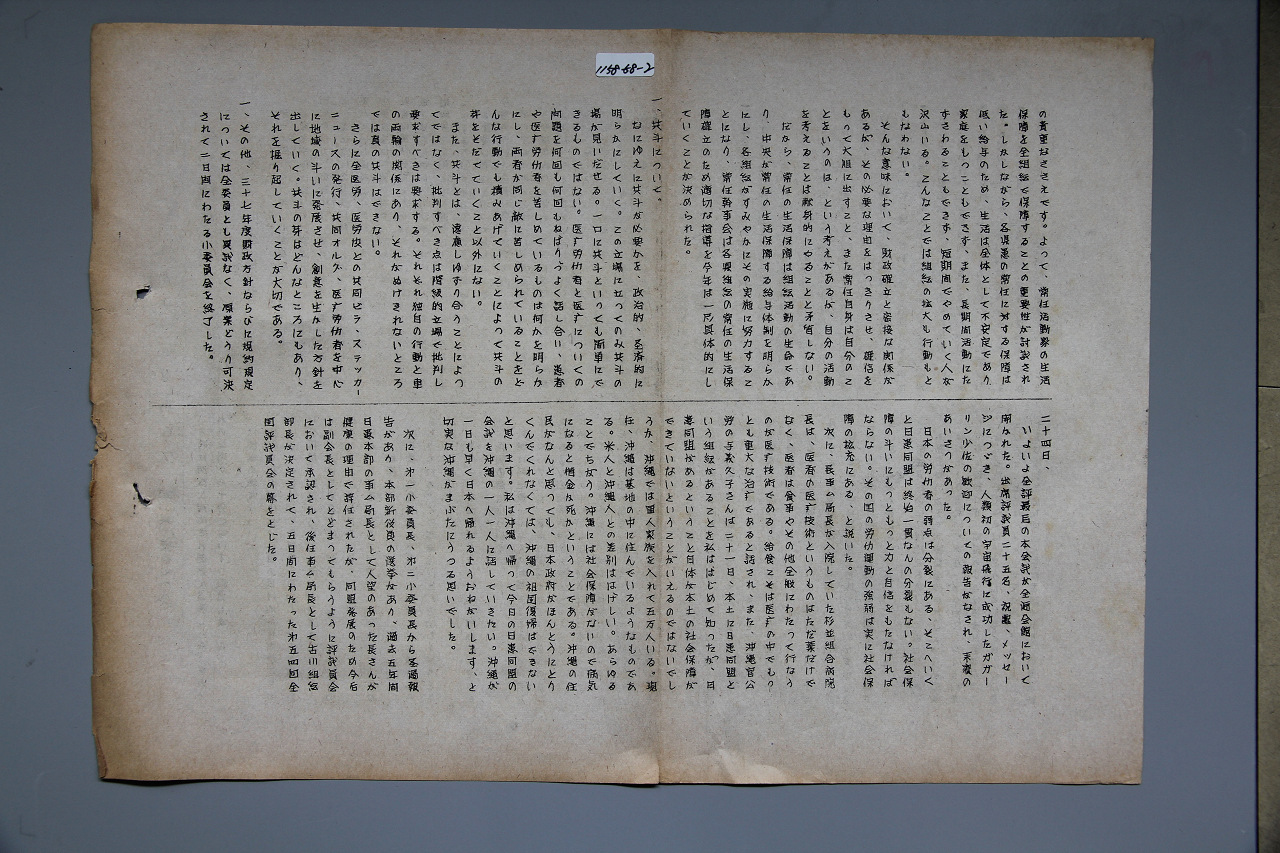 1158-88-2
の貴重なささえです。よって、常任活動家の生活
保障を全組織で保障することの重要性が討議され
た。しかしながら、各県患の常任に対する保障は
低い給与のため、生活は全体として不安定であり
家庭をもつこともできず、また、長期間活動にた
ずさわることもできず、短期間でやめていく人が
沢山いる。こんなことでは組織の拡大も行動もと
もなわない。
そんな意味において、財政確立と密接な関係が
あるが、その必要な理由をはっきりさせ、確信を
もって大胆に出すこと、また常任自身は自分のこ
とをいうのは、という考えがあるが、自分の活動
を考えることは献身的にやることと矛盾しない。
だから、常任の生活保障は組織活動の生命であ
り、中央が常任の生活保障する給与体制を明らか
にし、各組織がすみやかにその実施に努力するこ
とになり、常任幹事会は各県組織の常任の生活保
障確立のため適切な指導を今年は一尺具体的にし
ていくことが決められた。
一、共斗について。
なにゆえに共斗が必要かを、政治的、経済的に
明らかにしていく。この立場に立つてのみ共斗の
場が見いだせる。一口に共斗といっても簡単にで
きるものではない。医疗労仂者と医疗についての
問題を何回も何回もねばりづよく話し合い、患者
や医疗労仂者を苦しめているものは何かを明らか
にし、両者が同じ敵に苦しめられていることをど
んな行動でも積みあげていくことによって共斗の
芽をそだてていくこと以外にない。
また、共斗とは、遠慮しゆずり合うことによっ
てではなく、批判すべき点は階級的立場で批判し
要求すべきは要求する。それぞれ独自の行動と車
の両輪の関係にあり、それがぬけきれないところ
では真の共斗はできない。
さらに全医労、医労连との共同ビラ、ステッカー
ニュースの発行、共同オルグ、医疗労仂者を中心
に地域の斗いに発展させ、創意を生かした方針を
出していく。共斗の芽はどんなところにもあり、
それを掘り起していくことが大切である。
一、その他、三十七年度財政方針ならびに規約規定
については全委員とし異議なく、原案どうり可決
されて二日間にわたる小委員会を終了した。
二十四日、
いよいよ全評最后の本会議が全逓会館において
開かれた。出席評議員二十五名、祝電、メッセー
ジにつづき、人類初の宇宙飛行に成功したガガー
リン少佐の歓迎についての報告がなされ、来賓の
あいさつがあった。
日本の労仂者の弱点は分裂にある、そこへいく
と日患同盟は終始一貫なんの分裂もない。社会保
障の斗いにもっともっと力と自信をもたなければ
ならない。その国の労仂運動の強弱は実に社会保
障の拡充にある、と説いた。
次に、長事ム局長が入院していた杉並組合病院
長は、医者の医疗技術というものはただ薬だけで
なく、医者は食事やその他全般にわたって行なう
のが医疗技術である。給食こそは医疗の中でもっ
とも重大な治疗であると話され、また、沖縄官公
労の与義久子さんは二十一日、本土に日患同盟と
いう組織があることを私ははじめて知ったが、日
患同盟があるということ自体が本土の社会保障が
できていないということがいえるのではないでし
うか、沖縄では軍人家族を入れて五万人いる。現
在、沖縄は基地の中に住んでいるようなものであ
る。米人と沖縄人との差別ははげしい。あらゆる
ことでちがう。沖縄には社会保障がないので病気
になると借金か死かということである。沖縄の住
民がなんと思っても、日本政府がほんとうにとり
くんでくれなくては、沖縄の祖国復帰はできない
と思います。私は沖縄へ帰って今日の日患同盟の
会議を沖縄の一人一人に話していきたい。沖縄が
一日も早く日本へ帰れるようおねがいします、と
切実な沖縄がまぶたにうつる思いでした。
次に、オ一小委員長、オ二小委員長から各過報
告があり、本部新役員の選挙があり、過去五年間
日患本部の事ム局長として人望のあった長さんが
健康の理由で辞任されたが、同盟発展のため今后
は副会長としてとどまってもらうように評議員会
において承認され、後任事ム局長として古川組織
部長が決定されて、五日間にわたったオ五四回全
国評議員会の幕をとじた。